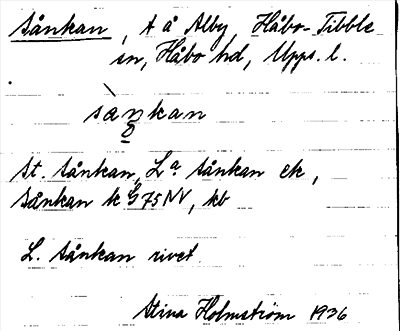 Sånkan, t å Alby, Håbo-Tibble
sn, Håbo hd, Upps. l.
sàŋkan
St. Sånkan, L.a Sånkan ek,
Sånkan k G 75 NV, kb
L. Sånkan rivet
Stina Holmström 1936